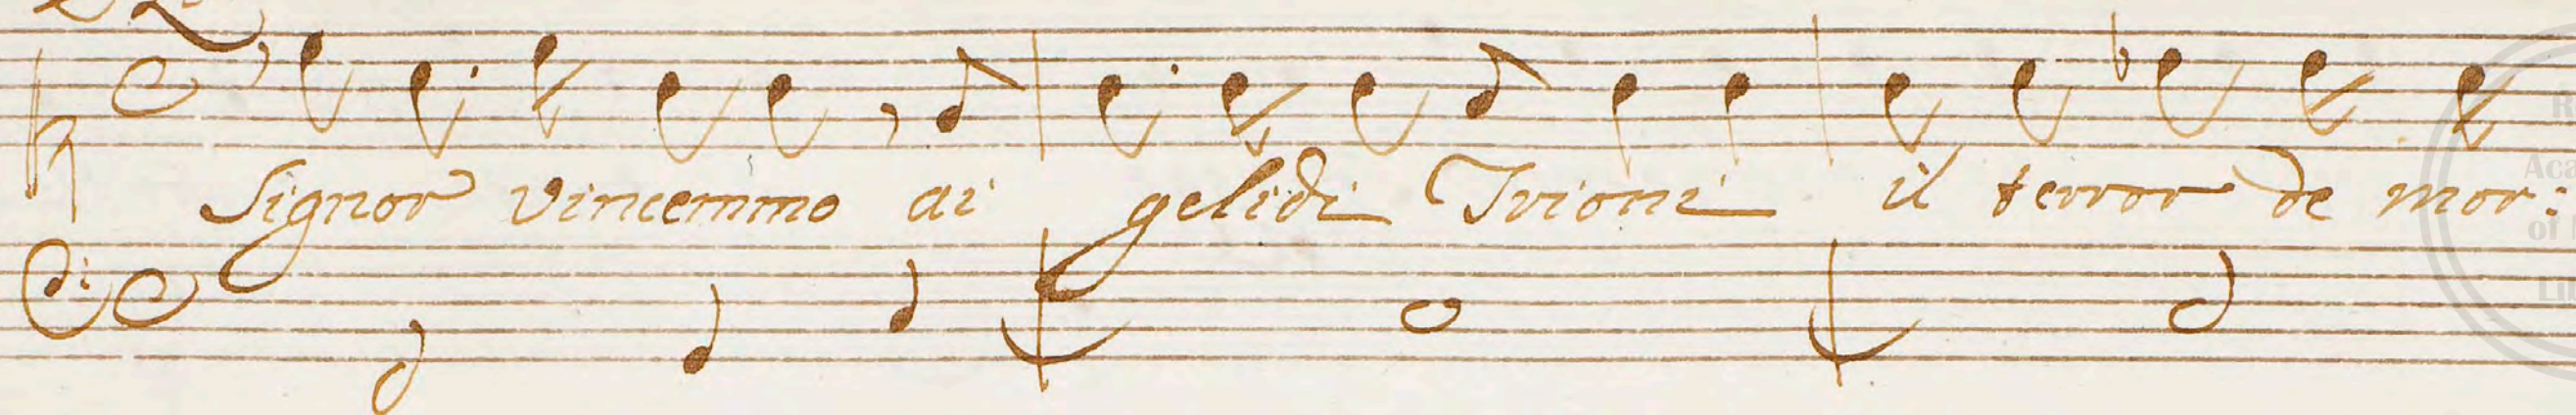 Signor vincemmo ai gelidi Trioni il terror de mor: